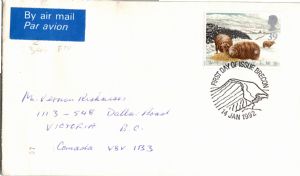 By air mail
Par avion
39
FIRST DAY OF ISSUE BRECON
14 JAN 1992
Mr. Vernon
1113 - 548 Dallas Road
VICTORIA B.C.
Canada V8V 1B3